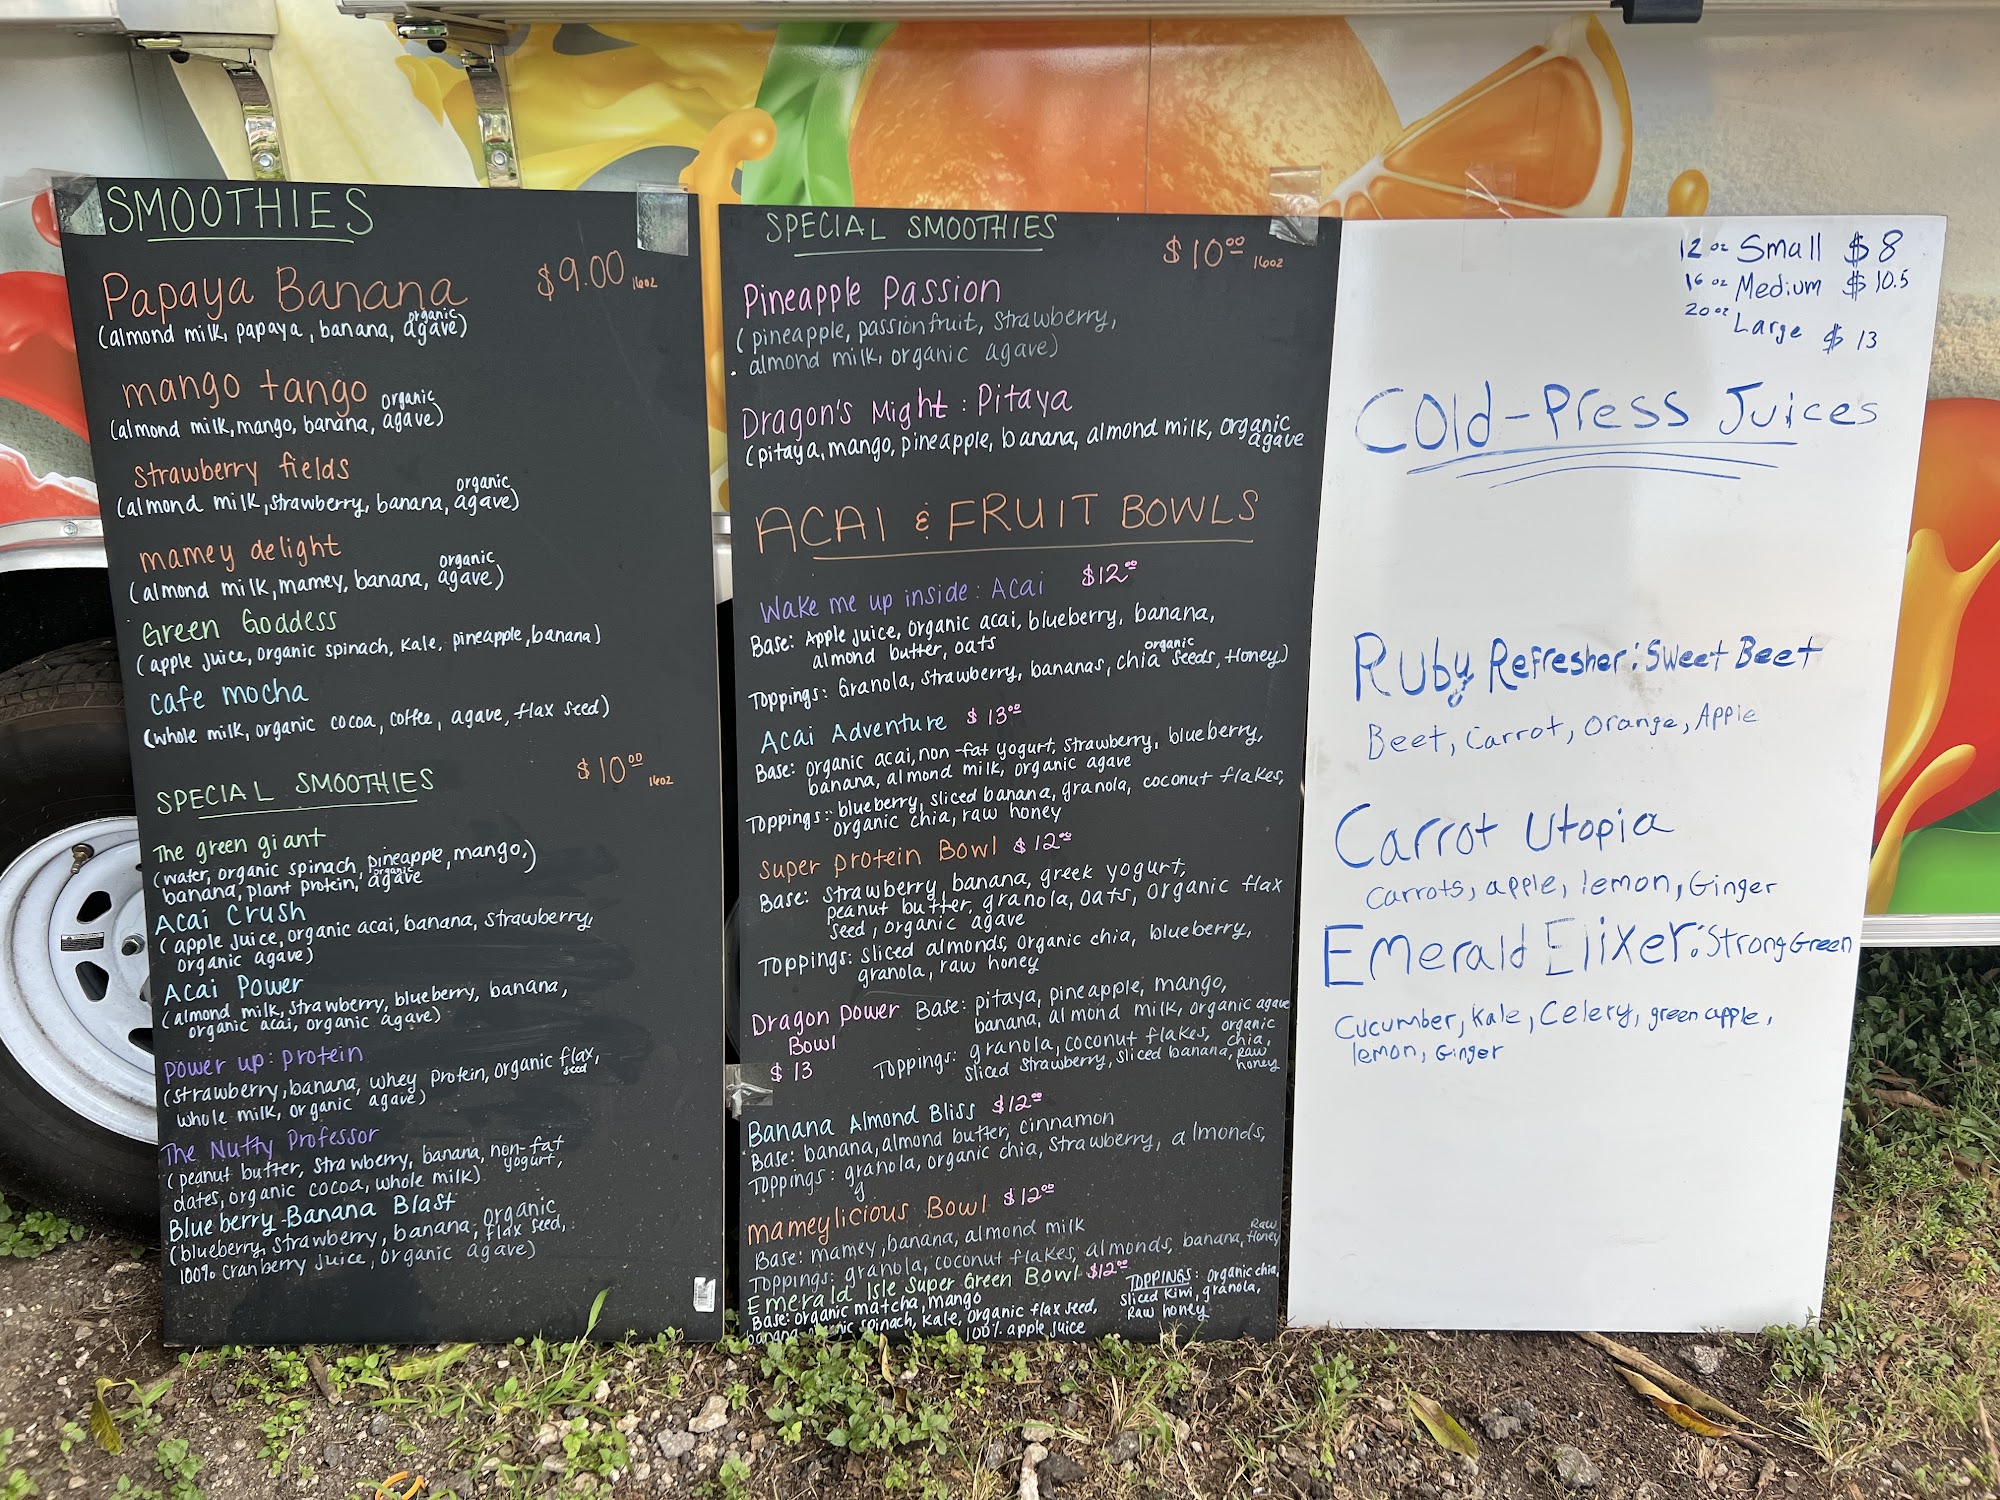 SMOOTHIES
$9.00 16oz
Papaya Banana
(almond milk, papaya, banana, organic agave)
mango tango
(almond milk, mango, banana, organic agave)
Strawberry fields
(almond milk, strawberry, banana, organic agave)
mamey delight
(almond milk, mamey, banana, organic agave)
Green Goddess
(apple juice, organic spinach, kale, pineapple, banana)
cafe mocha
(whole milk, organic cocoa, coffee, agave, flax seed)
SPECIAL SMOOTHIES $10.00 16oz
The green giant
(water, organic spinach, pineapple, mango,)
banana, plant protein, organic agave
Acai Crush
(apple juice, organic acai, banana, strawberry,
organic agave)
Acai Power
(almond milk, strawberry, blueberry, banana,
organic acai, organic agave)
Power up: protein
(strawberry, banana, whey protein, organic flax seed,
whole milk, organic agave)
The Nutty Professor
(peanut butter, strawberry, banana, non-fat yogurt,
dates, organic cocoa, whole milk)
Blueberry-Banana Blast
(blueberry, strawberry, banana, organic flax seed,
100% cranberry juice, organic agave)
SPECIAL SMOOTHIES $10.00 16oz
Pineapple Passion
(pineapple, passionfruit, strawberry,
almond milk, organic agave)
Dragon's Might: Pitaya
(pitaya, mango, pineapple, banana, almond milk, organic agave
ACAI & FRUIT BOWLS
Wake me up inside: Acai $12.00
Base: Apple juice, organic acai, blueberry, banana,
almond butter, oats
Toppings: Granola, strawberry, bananas, chia organic seeds, Honey)
Acai Adventure $13.00
Base: organic acai, non-fat yogurt, strawberry, blueberry,
banana, almond milk, organic agave
Toppings: blueberry, sliced banana, granola, coconut flakes,
organic chia, raw honey
Super protein Bowl $12.00
Base: strawberry, banana, greek yogurt,
peanut butter, granola, oats, organic flax
seed, organic agave
Toppings: sliced almonds, organic chia, blueberry,
granola, raw honey
Dragon Power Bowl $13
Base: pitaya, pineapple, mango,
banana, almond milk, organic agave
Toppings: granola, coconut flakes, organic chia,
sliced strawberry, sliced banana, raw honey
Banana Almond Bliss $12.00
Base: banana, almond butter, cinnamon
Toppings: granola, organic chia, strawberry, almonds,
g
mameylicious Bowl $12.00
Base: mamey, banana, almond milk
Toppings: granola, coconut flakes, almonds, banana, Raw Honey
Emerald Isle Super Green Bowl $12.00
Base: organic matcha, mango
banana, organic spinach, kale, organic flax seed,
100% apple juice
TOPPINGS: organic chia,
sliced kiwi, granola,
Raw honey
12 oz Small $8
16 oz Medium $10.5
20 oz Large $13
Cold-Press Juices
Ruby Refresher: Sweet Beet
Beet, Carrot, Orange, Apple
Carrot Utopia
Carrots, apple, lemon, Ginger
Emerald Elixer: Strong Green
Cucumber, Kale, Celery, green apple,
lemon, Ginger